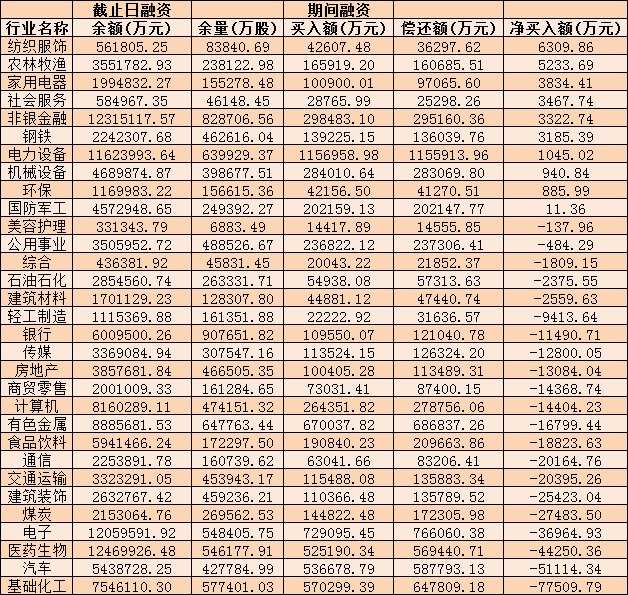 截止日融资 期间融资
行业名称 余额(万元) 余量(万股) 买入额(万元) 偿还额(万元) 净买入额(万元)
纺织服饰 561805.25 83840.69 42607.48 36297.62 6309.86
农林牧渔 3551782.93 238122.98 165919.20 160685.51 5233.69
家用电器 1994832.27 155278.48 100900.01 97065.60 3834.41
社会服务 584967.35 46148.45 28765.99 25298.26 3467.74
非银金融 12315117.57 828706.56 298483.10 295160.36 3322.74
钢铁 2242307.68 462616.04 139225.15 136039.76 3185.39
电力设备 11623993.64 639929.37 1156958.98 1155913.96 1045.02
机械设备 4689874.87 398677.51 284010.64 283069.80 940.84
环保 1169983.22 156615.36 42156.50 41270.51 885.99
国防军工 4572948.65 249392.27 202159.13 202147.77 11.36
美容护理 331343.79 6883.49 14417.89 14555.85 -137.96
公用事业 3505952.72 488526.67 236822.12 237306.41 -484.29
综合 436381.92 45831.45 20043.22 21852.37 -1809.15
石油石化 2854560.74 263331.71 54938.08 57313.63 -2375.55
建筑材料 1701129.23 128307.80 44881.12 47440.74 -2559.63
轻工制造 1115369.88 161351.88 22222.92 31636.57 -9413.64
银行 6009500.26 907651.82 109550.07 121040.78 -11490.71
传媒 3369084.94 307547.16 113524.15 126324.20 -12800.05
房地产 3857681.84 466505.35 100405.28 113489.31 -13084.04
商贸零售 2001009.33 161284.65 73031.41 87400.15 -14368.74
计算机 8160289.11 474151.32 264351.82 278756.06 -14404.23
有色金属 8885681.53 647763.44 670037.82 686837.26 -16799.44
食品饮料 5941466.24 172297.50 190840.23 209663.86 -18823.63
通信 2253891.78 160739.62 63041.66 83206.41 -20164.76
交通运输 3323291.05 453943.17 115488.08 135883.34 -20395.26
建筑装饰 2632767.42 459236.21 110366.48 135789.52 -25423.04
煤炭 2153064.76 269562.53 144822.48 172305.98 -27483.50
电子 12059591.92 548405.75 729095.45 766060.38 -36964.93
医药生物 12469926.48 546177.91 525190.34 569440.71 -44250.36
汽车 5438728.25 427784.99 536678.79 587793.13 -51114.34
基础化工 7546110.30 577401.03 570299.39 647809.18 -77509.79